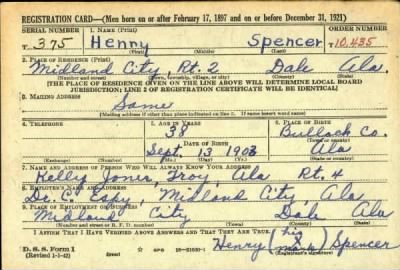 REGISTRATION CARD—(Men born on or after February 17, 1897 and on or before December 31, 1921)
SERIAL NUMBER 1. NAME (Print) ORDER NUMBER
T 375 Henry Spencer T10,435
(First) (Middle) (Last)
2. PLACE OF RESIDENCE (Print)
Midland City, Rt. 2 Dale Ala.
(Number and street) (Town, township, village, or city) (County) (State)
[THE PLACE OF RESIDENCE GIVEN ON THE LINE ABOVE WILL DETERMINE LOCAL BOARD
JURISDICTION; LINE 2 OF REGISTRATION CERTIFICATE WILL BE IDENTICAL]
3. MAILING ADDRESS
Same
[Mailing address if other than place indicated on line 2. If same insert word same]
4. TELEPHONE 5. AGE IN YEARS 6. PLACE OF BIRTH
38 Bullock Co.
DATE OF BIRTH (Town or county)
Sept. 13 1903 Ala
(Exchange) (Number) (Mo.) (Day) (Yr.) (State or country)
7. NAME AND ADDRESS OF PERSON WHO WILL ALWAYS KNOW YOUR ADDRESS
Jones, Troy, Ala Rt. 4
8. EMPLOYER'S NAME AND ADDRESS
Dr. Espy, Midland City, Ala
9. PLACE OF EMPLOYMENT OR BUSINESS
Midland City Dale Ala
(Number and street or R. F. D. number) (Town) (County) (State)
I AFFIRM THAT I HAVE VERIFIED ABOVE ANSWERS AND THAT THEY ARE TRUE.
D. S. S. Form 1 Henry (his x mark) Spencer
(Revised 1-1-42) (over) (Registrant's signature)